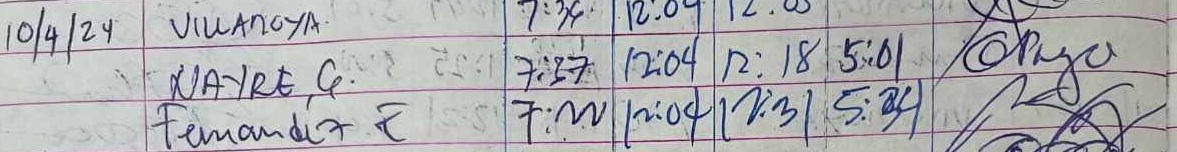 10/4/24 VILLANOYA 7:34 12:04 12:05
NAYRE, G. 7:37 12:04 12:18 5:01
Fernandez E 7:20 12:04 12:31 5:34